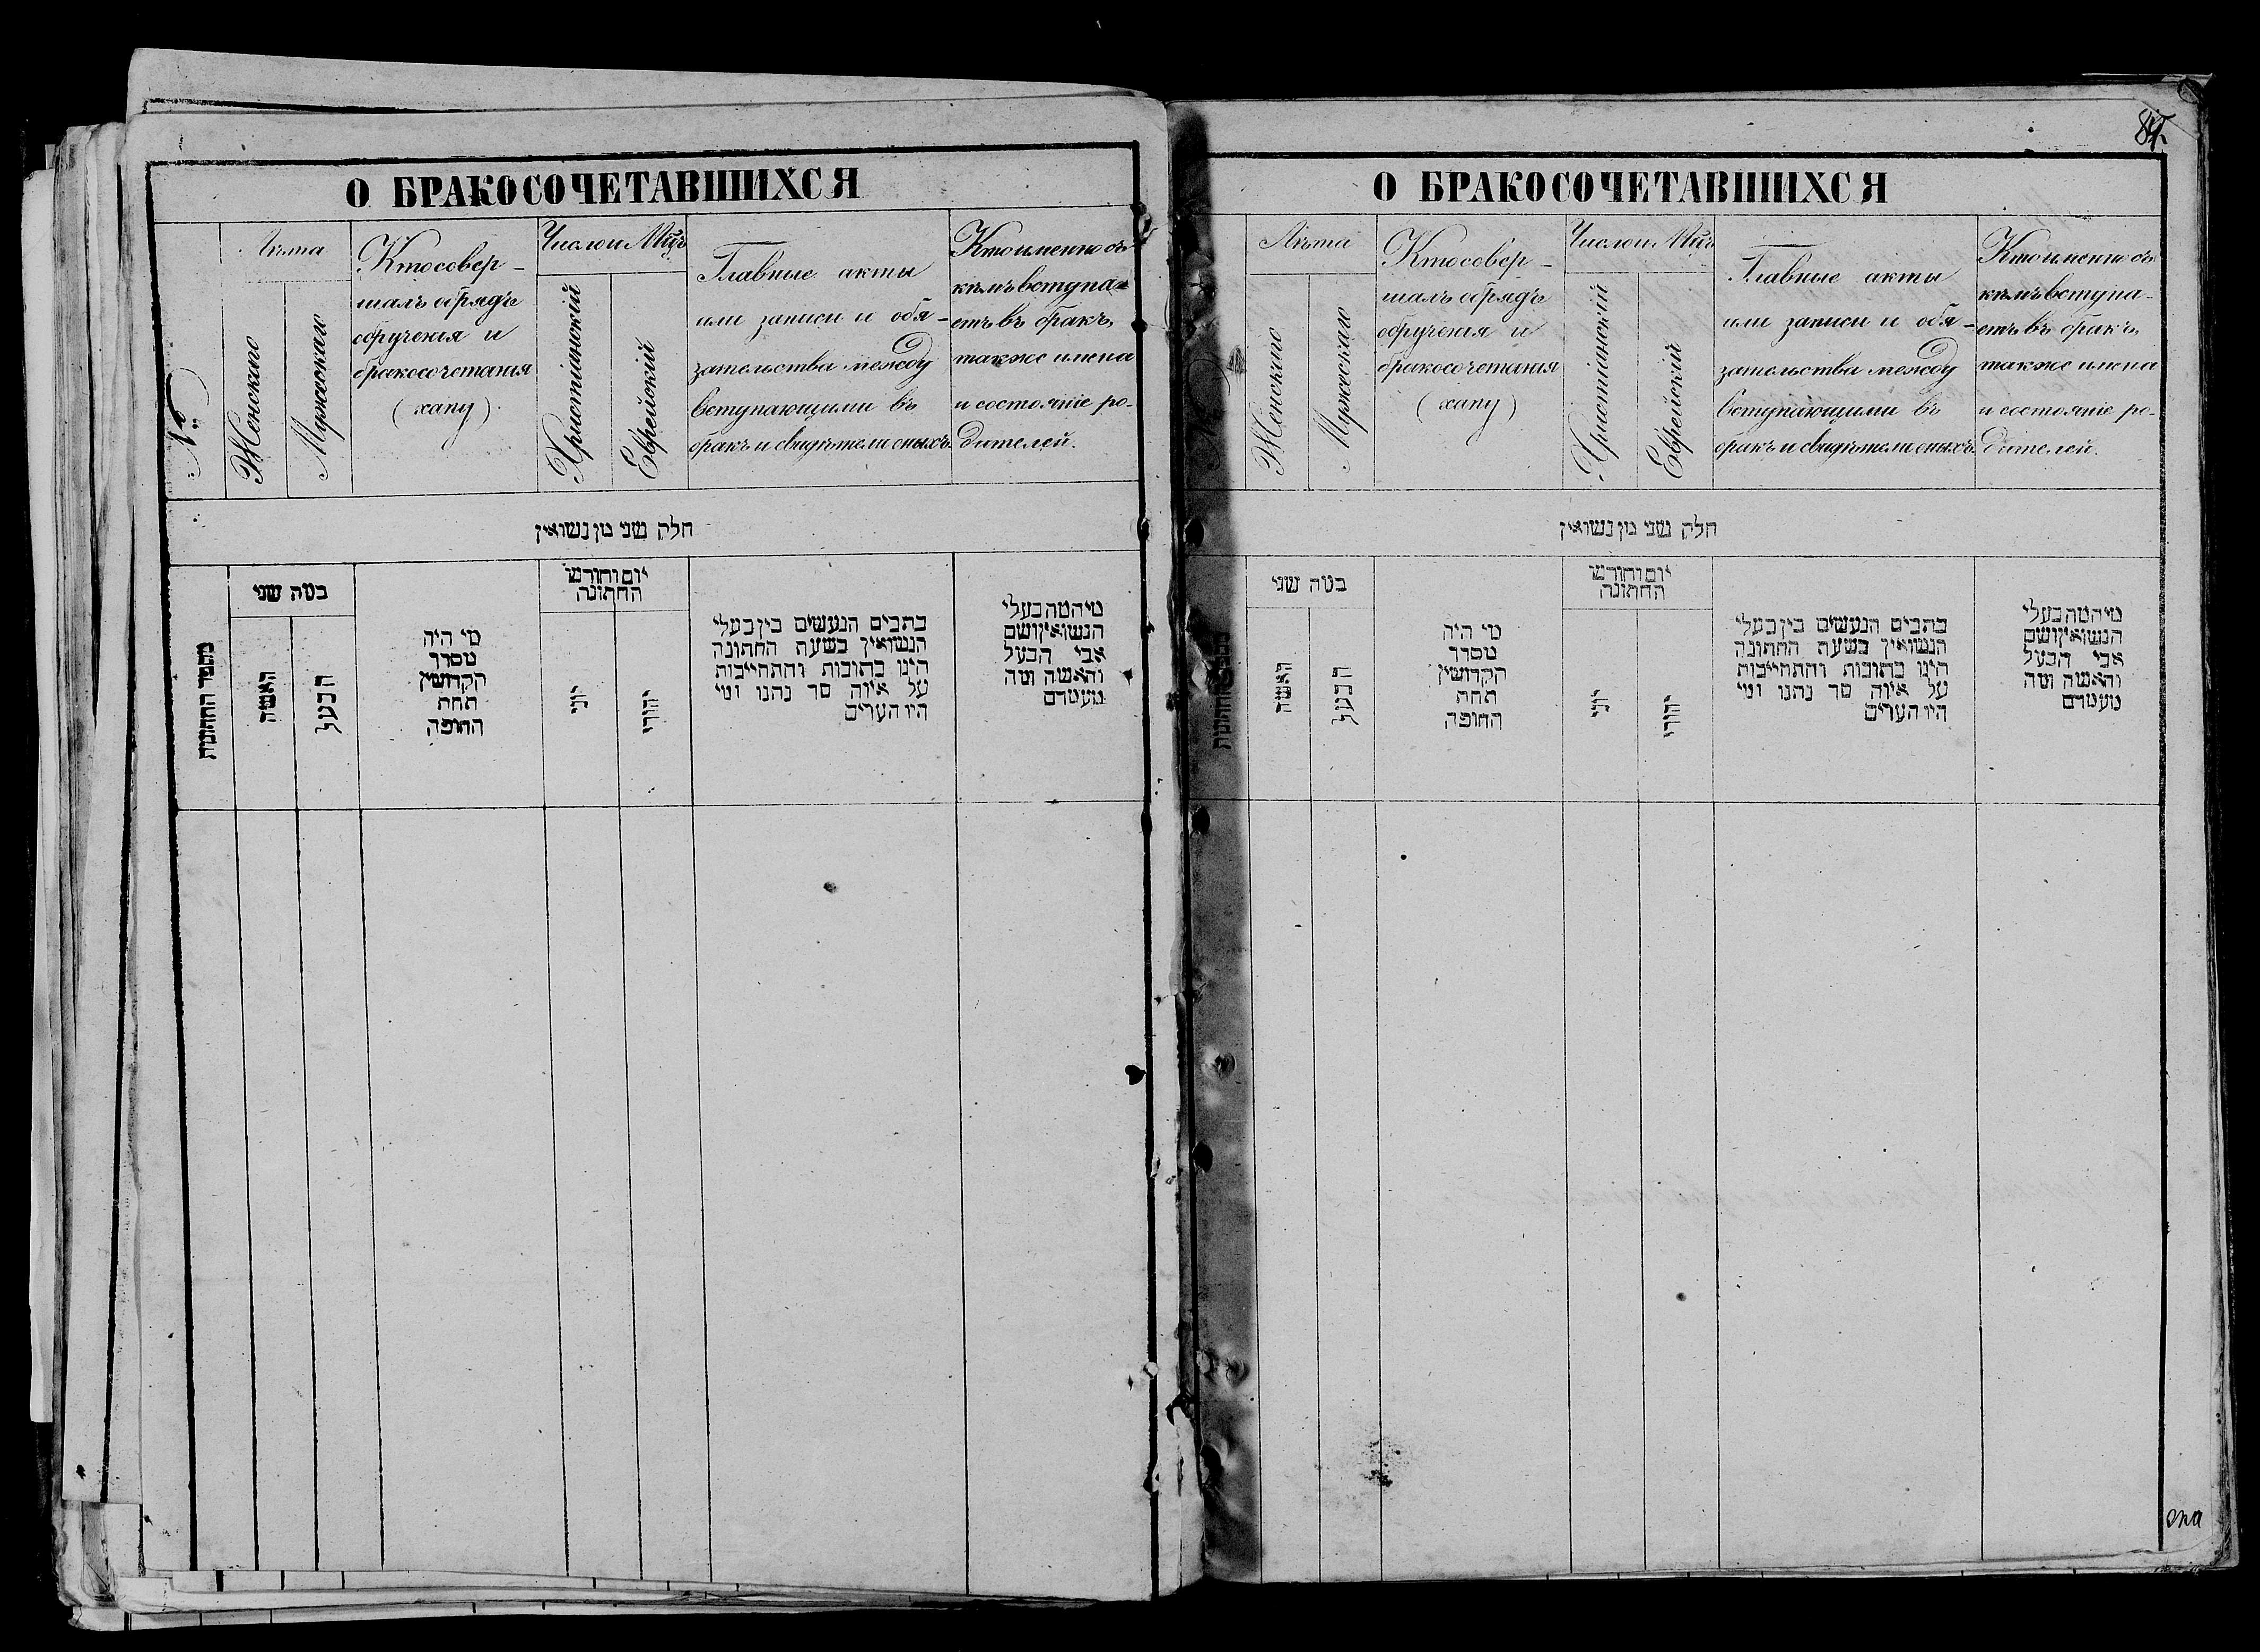 О БРАКОСОЧЕТАВШИХСЯ
№
Лѣта
Женскаго
Мужескаго
Кто совер-
шалъ обрядъ
обрученія и
бракосочетанія
(хапу)
Число и М-цъ
Христіанскій
Еврейскій
Главные акты
или записи и обя-
зательства между
вступающими въ
бракъ и свидѣтели оныхъ.
Кто именно съ
кѣмъ вступа-
етъ въ бракъ,
также имена
и состояніе ро-
дителей.
חלק שני מן נשואין
מספר החתונות
כמה שני
האשה
הבעל
מי היה
מסדר
הקדושין
תחת
החופה
יום וחודש
החתונה
יוני
יהודי
כתבים הנעשים בין בעלי
הנשואין בשעת החתונה
היינו כתובות והתחייבות
על איזה סך נתנו ומי
היו העדים
מי המה בעלי
הנשואין ושם
אבי הבעל
והאשה ומה
מעמדם
84
О БРАКОСОЧЕТАВШИХСЯ
Лѣта
Женскаго
Мужескаго
Кто совер-
шалъ обрядъ
обрученія и
бракосочетанія
(хапу)
Число и М-цъ
Христіанскій
Еврейскій
Главные акты
или записи и обя-
зательства между
вступающими въ
бракъ и свидѣтели оныхъ.
Кто именно съ
кѣмъ вступа-
етъ въ бракъ,
также имена
и состояніе ро-
дителей.
חלק שני מן נשואין
כמה שני
האשה
הבעל
מי היה
מסדר
הקדושין
תחת
החופה
יום וחודש
החתונה
יוני
יהודי
כתבים הנעשים בין בעלי
הנשואין בשעת החתונה
היינו כתובות והתחייבות
על איזה סך נתנו ומי
היו העדים
מי המה בעלי
הנשואין ושם
אבי הבעל
והאשה ומה
מעמדם